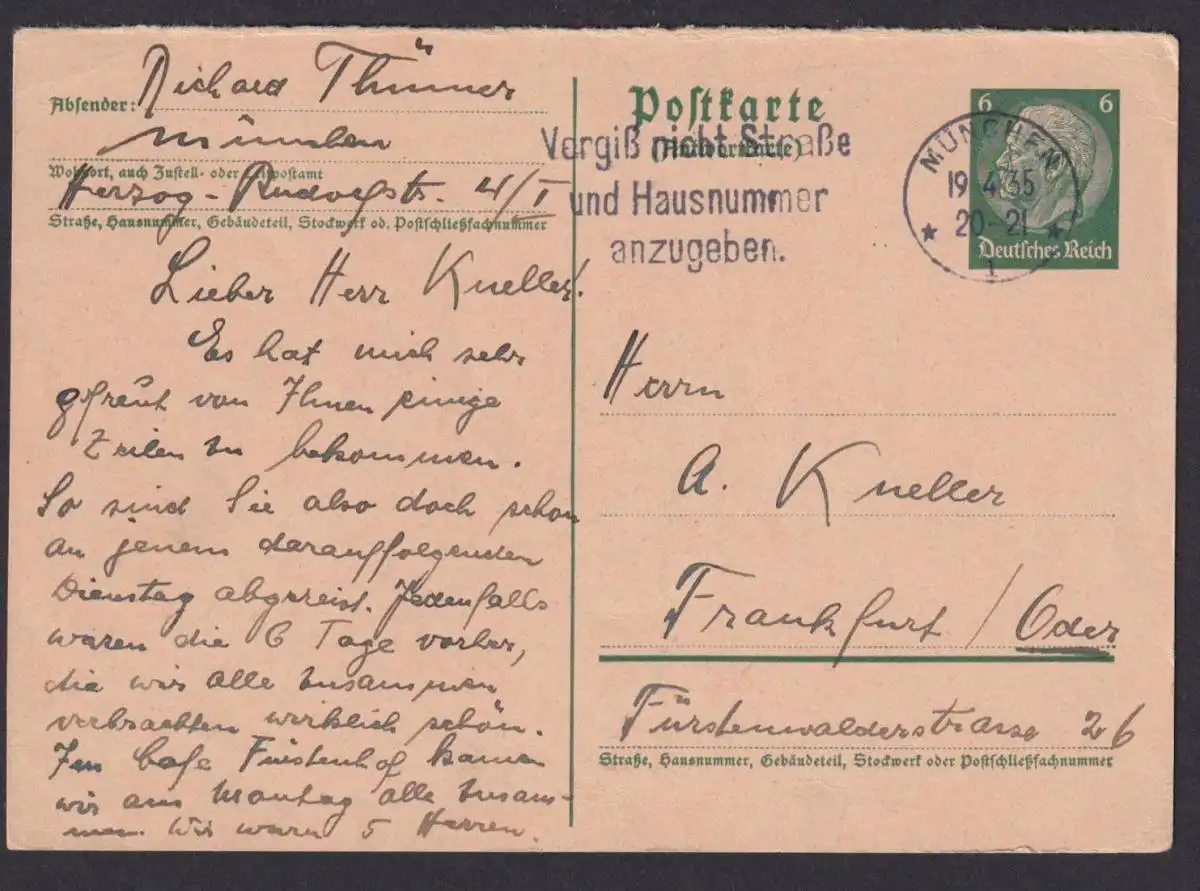 Absender: Richard Thümer
München
Wohnort, auch Zustell- oder Leitpostamt
Herzog-Rudolfstr. 4/I
Straße, Hausnummer, Gebäudeteil, Stockwerk od. Postschließfachnummer
Lieber Herr Kneller!
Es hat mich sehr
gefreut von Ihnen einige
Zeilen zu bekommen.
So sind Sie also doch schon
an jenem darauffolgenden
Dienstag abgereist. Jedenfalls
waren die 6 Tage vorher,
die wir alle zusammen
verbrachten wirklich schön.
Im Cafe Fürstenhof kamen
wir am Montag alle zusam-
men. Wir waren 5 Herren.
Postkarte
(Antwortkarte)
Vergiß nicht Straße
und Hausnummer
anzugeben.
MÜNCHEN
19 4 35
20-21
1
6 6
Deutsches Reich
Herrn
A. Kneller
Frankfurt / Oder
Fürstenwalderstrasse 26
Straße, Hausnummer, Gebäudeteil, Stockwerk oder Postschließfachnummer